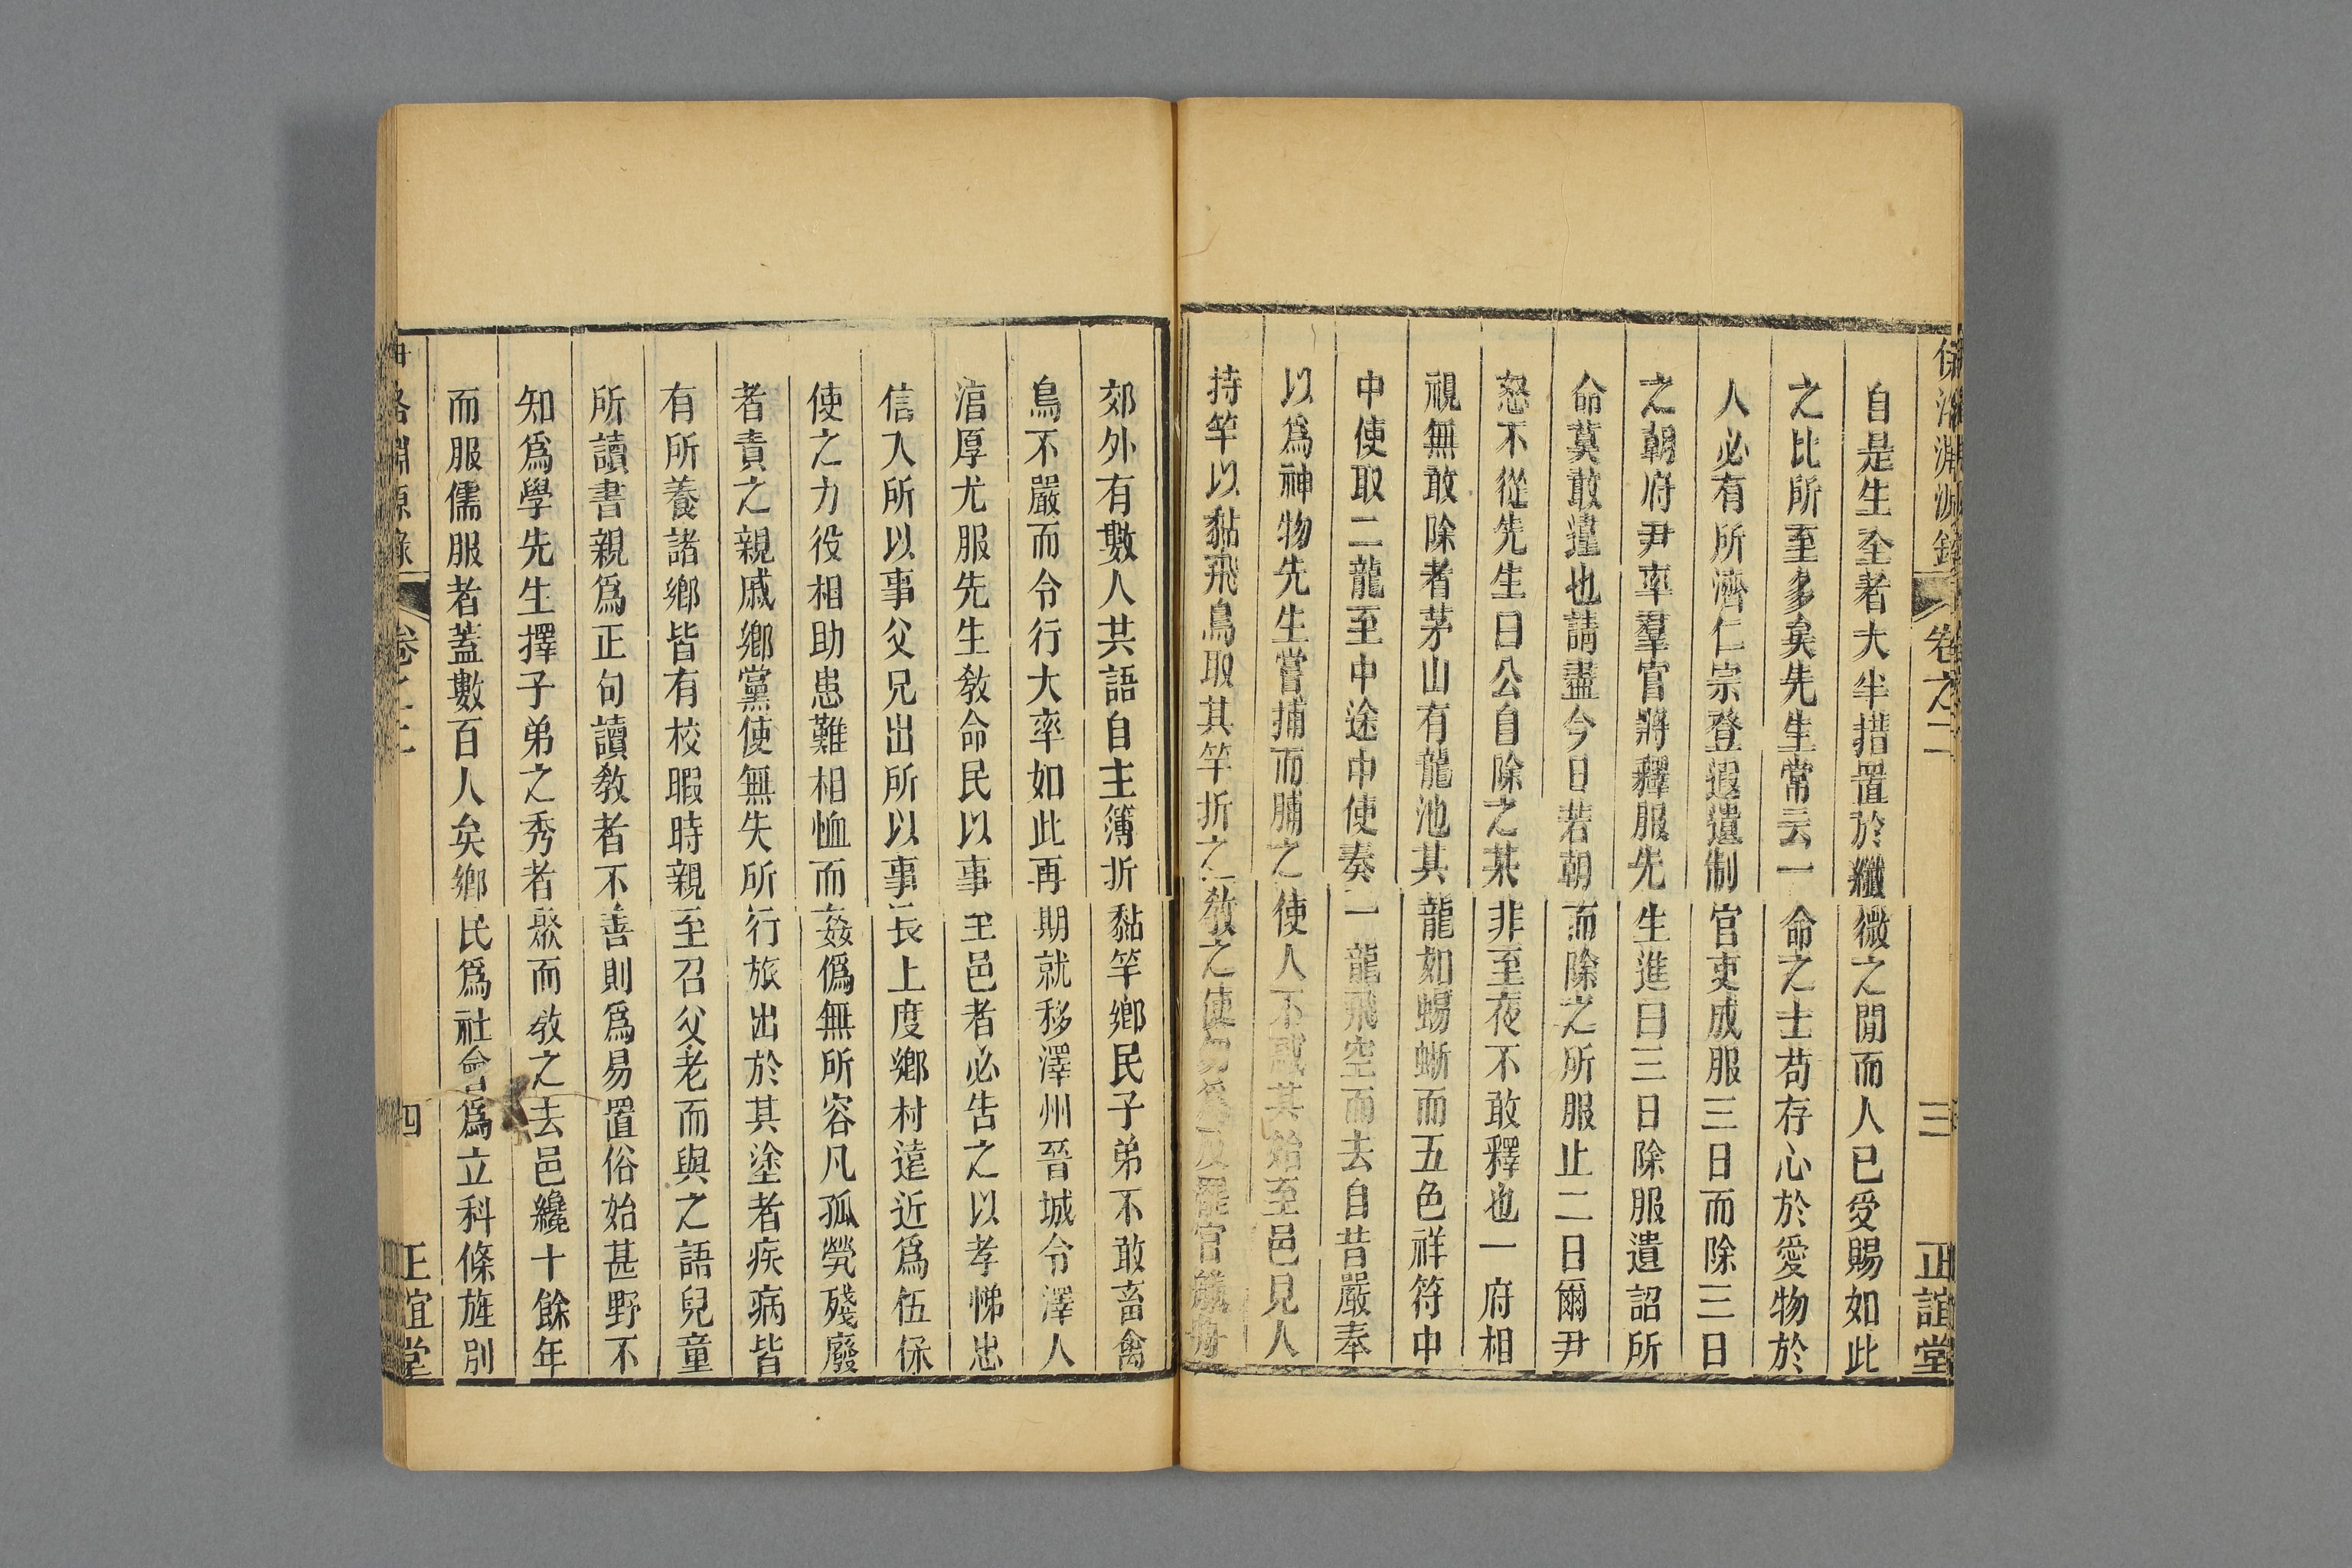 自是生全者大半措置於纖微之閒而人已受賜如此
之比所至多矣先生常云一命之士苟存心於愛物於
人必有所濟仁宗登遐遺制官吏成服三日而除三日
之朝府尹率羣官將釋服先生進曰三日除服遺詔所
命莫敢違也請盡今日若朝而除之所服止二日爾尹
怒不從先生曰公自除之某非至夜不敢釋也一府相
視無敢除者茅山有龍池其龍如蜴蜥而五色祥符中
中使取二龍至中途中使奏一龍飛空而去自昔嚴奉
以爲神物先生嘗捕而脯之使人不惑其始至邑見人
持竿以黏飛鳥取其竿折之敎之使勿爲及罷官艤舟
卷之二
三
正誼堂
郊外有數人共語自主簿折黏竿鄉民子弟不敢畜禽
鳥不嚴而令行大率如此再期就移澤州晉城令澤人
湻厚尤服先生敎命民以事至邑者必告之以孝悌忠
信入所以事父兄出所以事長上度鄉村遠近爲伍保
使之力役相助患難相恤而姦僞無所容凡孤煢殘廢
者責之親戚鄉黨使無失所行旅出於其塗者疾病皆
有所養諸鄉皆有校暇時親至召父老而與之語兒童
所讀書親爲正句讀敎者不善則爲易置俗始甚野不
知爲學先生擇子弟之秀者聚而敎之去邑纔十餘年
而服儒服者蓋數百人矣鄉民爲社會爲立科條旌別
卷之二
四
正誼堂